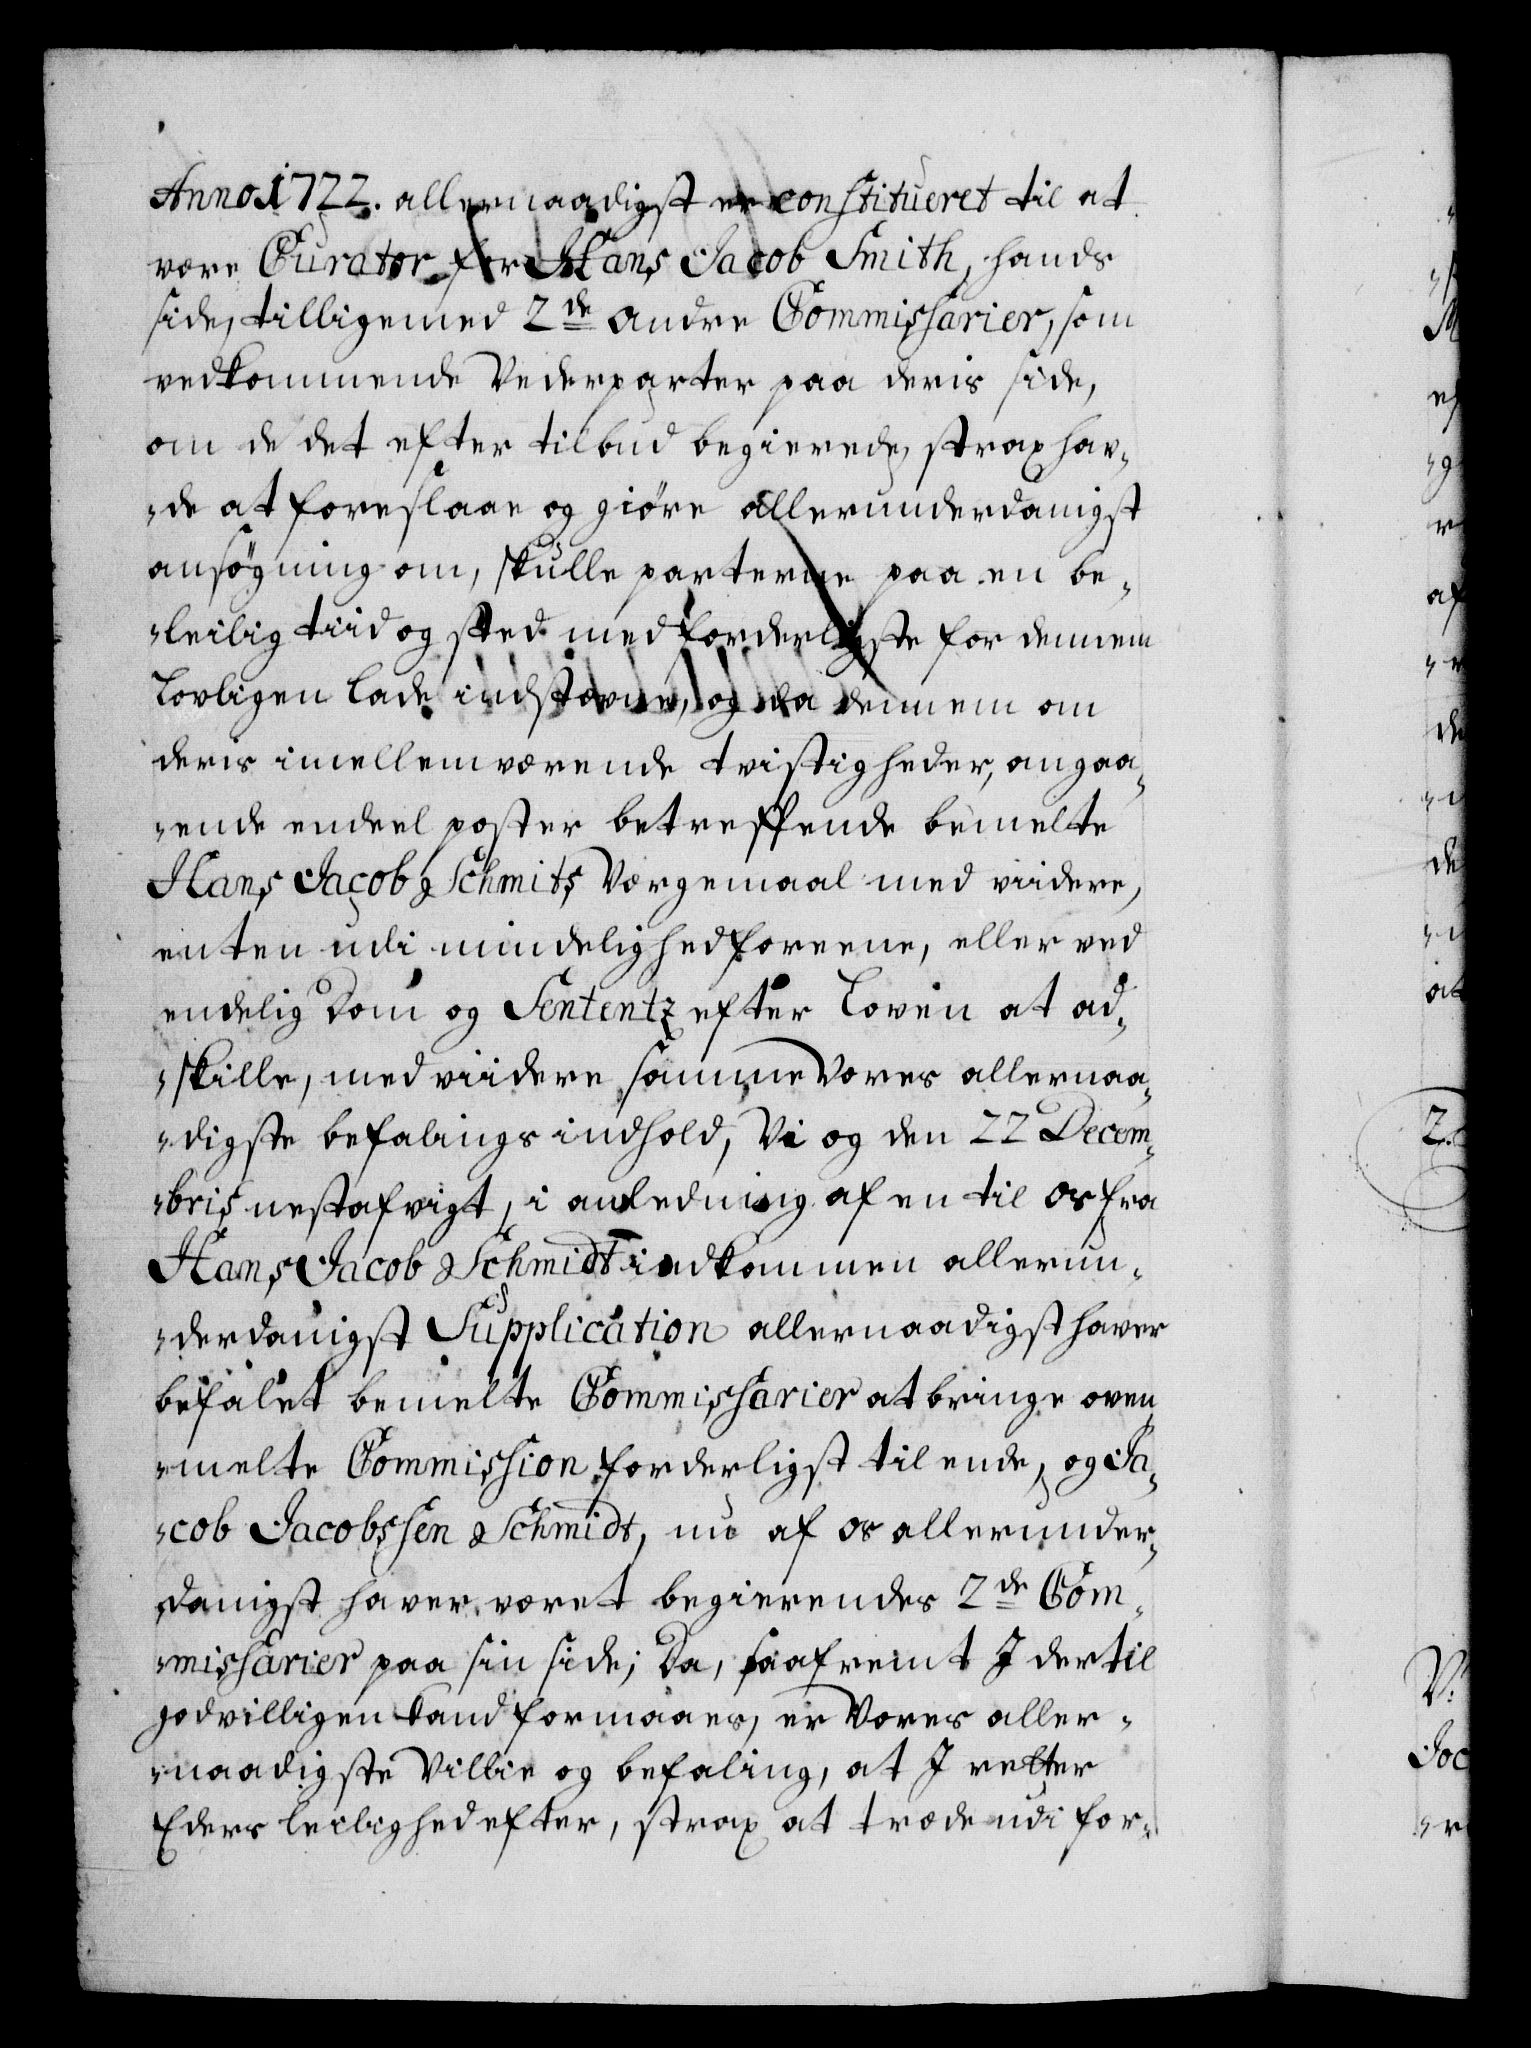 Anno 1722. allernaadigst er constitueret til at
være Curator for Hans Jacob Smith, hands
side, tilligemed 2de andre Commissarier, som
vedkommende Vederparter paa deris side,
om de det efter tilbud begierede, strax hav-
-de at foreslaae og giøre allerunderdanigst
ansøgning om, skulle parterne paa en be-
-leilig tiid og sted med forderligste for dennem
lovligen lade indstævne, og da dennem om
deris imellemværende tvistigheder, angaa-
-ende endeel poster betreffende bemelte
Hans Jacob Schmits Værgemaal med viidere,
enten udi mindelighed foreene, eller ved
endelig Dom og Sententz efter Loven at ad-
-skille, med viidere samme Vores allernaa-
-digste befalings indhold, Vi og den 22 Decem-
-bris nestafvigt, i anledning af en til os fra
Hans Jacob Schmidt indkommen allerun-
-derdanigst Supplication allernaadigst haver
befalet bemelte Commissarier at bringe oven-
-melte Commission forderligst til ende, og Ja-
-cob Jacobssen Schmidt, nu af os allerunder-
danigst haver været begierendes 2de Com-
-missarier paa sin side; Da, saafremt I dertil
godvilligen kand formaaes, er Vores aller-
-naadigste Villie og befaling, at I retter
Eders leilighed efter, strax at træde udi for-